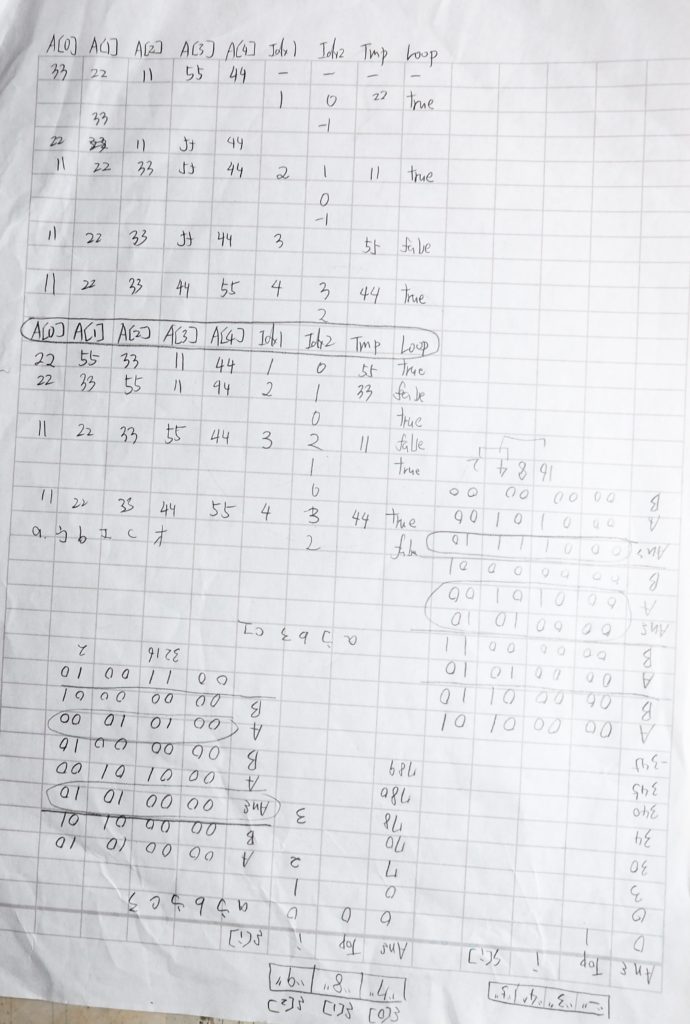 A[0] A[1] A[2] A[3] A[4] Idx1 Idx2 Tmp Loop
33 22 11 55 44 - - - -
1 0 22 true
33 -1
22 11 55 44
11 22 33 55 44 2 1 11 true
0
-1
11 22 33 55 44 3 55 false
11 22 33 44 55 4 3 44 true
2
A[0] A[1] A[2] A[3] A[4] Idx1 Idx2 Tmp Loop
22 55 33 11 44 1 0 55 true
22 33 55 11 94 2 1 33 false
0 true
11 22 33 55 44 3 2 11 false
1 true
0
11 22 33 44 55 4 3 44 true
2 false
S[0] S[1] S[2]
"7" "8" "9"
Ans Top i S[i]
0 0 0
0 1
7 2
70
78 3
780
789
A 00 00 01 10
B 00 00 01 01
Ans 00 00 01 01
A 00 01 01 00
B 00 00 00 01
A 00 01 01 00
B 00 00 00 01
00 11 00 10
32 16 2
"-" "3" "4" "5"
Ans Top i S[i]
0 1
0
3
30
34
340
345
-345
A 00 00 01 01
B 00 00 01 01
A 00 00 01 01
B 00 00 00 11
Ans 00 00 01 01
A 00 01 01 00
B 00 00 00 01
Ans 00 01 11 01
A 00 01 01 00
B 00 00 00 00
16 8 4 2